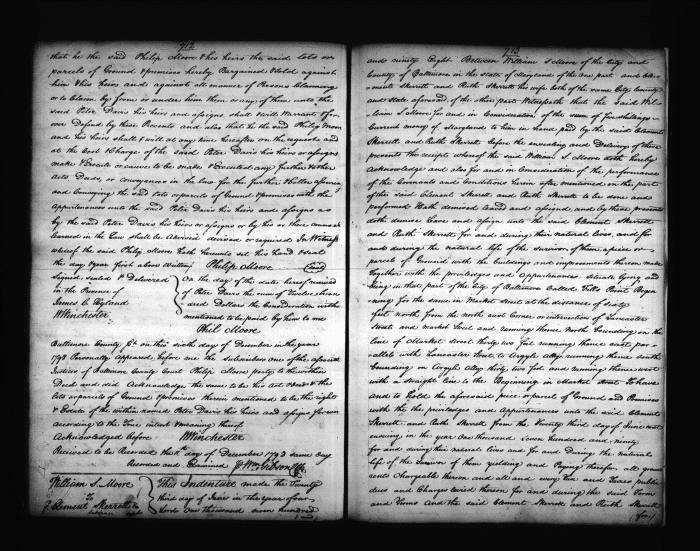 712
that he the said Philip Moore & his heirs the said lots or
parcels of Ground & premises hereby Bargained & Sold against
him & his heirs and against all manner of Persons Claiming
or to Claim by from or under him them or any of them unto the
said Peter Davis his heirs and assigns shall & Will Warrant & for
ever Defend by these Presents and also that he the said Philip Moore
and his heirs shall & will at any time hereafter on the request and
at the Cost & Charge of the said Peter Davis his heirs or assigns
make & Execute or cause to be made & Executed any further & other
Acts Deeds or conveyances in the law for the further & better assuring
and Conveying the said lots or parcels of Ground & premises with the
Appurtenances unto the said Peter Davis his heirs and assigns as
by the said Peter Davis his heirs or assigns or by his or their council
learned in the Law shall be Advised devised or required In Witness
whereof the said Philip Moore hath hereunto set his hand & seal
the day & year first above Written Philip Moore (Seal)
Signed sealed & Delivered
in the Presence of
James C. Hyland
W Winchester
On the day of the date hereof received
of Peter Davis the sum of Twelve hun
dred Dollars the Consideration within
mentioned to be paid by him to me
Phil Moore
Baltimore County Sct. on this sixth day of December in the year
1798 Personally appeared before me the subscriber one of the associate
Justices of Baltimore County Court Philip Moore party to the within
Deed and did Acknowledge the same to be his act & deed & the
lots or parcels of Ground & premises therein mentioned to be the right
& Estate of the within named Peter Davis his heirs and assigns forever
according to the True intent & meaning thereof
Acknowledged before W Winchester
Received to be Recorded the day of December 1798 same day
Recorded and Examined Wm Gibson Clk
William S. Moore
To
Clement Skerrett &
This Indenture made the Twenty
third day of June in the year of our
Lord one thousand seven hundred
713
and ninety Eight Between William S Moore of the City and
County of Baltimore in the state of Maryland of the One part and Cle-
ment Skerrett and Ruth Skerrett his wife both of the same City County
and State aforesaid of the other part Witnesseth that the said Wil-
liam S. Moore for and in Consideration of the sum of five shillings
Current money of Maryland to him in hand paid by the said Clement
Skerrett and Ruth Skerrett before the ensealing and Delivery of these
presents the receipt whereof the said William S Moore doth hereby
Acknowledge and also for and in Consideration of the performance
of the Covenants and Conditions herein after mentioned on the part
of the said Clement Skerrett and Ruth Skerrett to be done and
performed Hath demised leased and assigned and by these presents
doth demise Lease and assign unto the said Clement Skerrett
and Ruth Skerrett for and during their natural lives, and for
and during the natural life of the survivor of them a piece or
parcel of Ground with the buildings and improvements thereon made
Together with the priviledges and Appurtenances situate lying and
being in that part of the City of Baltimore Called Fells Point Begin
ning for the same in Market street at the distance of sixty
feet north from the north east Corner or intersection of Lancaster
Street and Market Street and running thence North bounding on the
line of Market street thirty two feet running thence east par-
allel with Lancaster Street to Argyle Alley running thence south
bounding on Argyle Alley thirty two feet and running thence west
with a straight line to the Beginning in Market street To have
and to hold the aforesaid piece or parcel of Ground and Premises
with the priviledges and Appurtenances unto the said Clement
Skerrett, and Ruth Skerrett from the Twenty third day of June next
ensuing in the year One thousand seven hundred and ninety
for and during their natural lives and for and During the natural
life of the Survivor of them yielding and Paying therefor all ground
rents Chargeable thereon and all and every Tax and Taxes public
dues and Charges levied thereon for and during the said Term
and Terms And the said Clement Skerrett and Ruth Skerrett
(for)